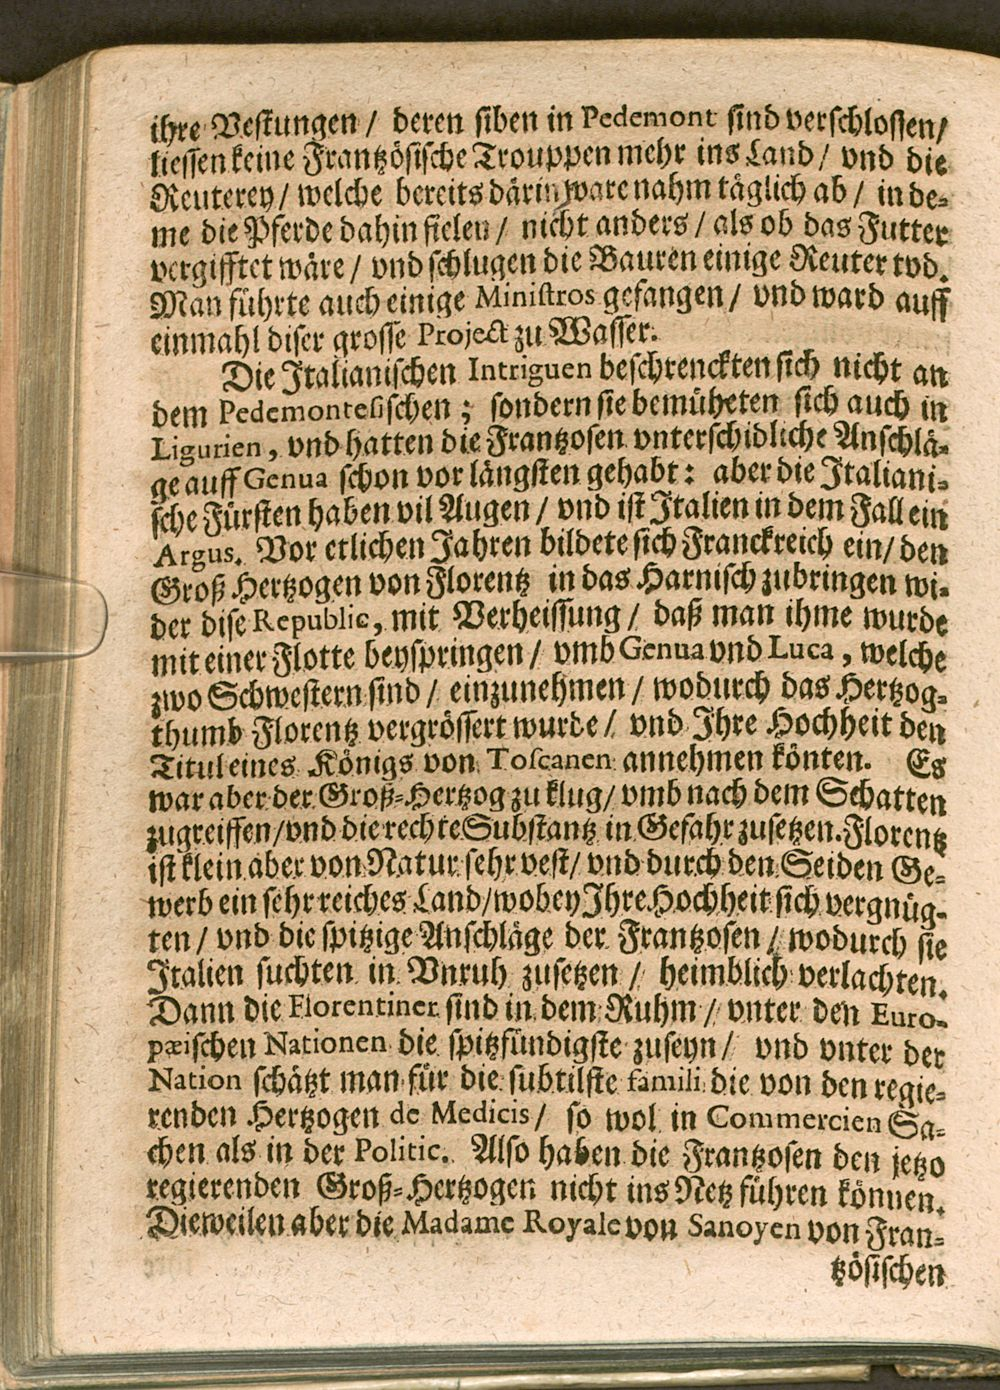 ihre Vestungen / deren siben in Pedemont sind verschlossen/
liessen keine Frantzösische Trouppen mehr ins Land / vnd die
Reuterey / welche bereits därin ware nahm täglich ab / in de-
me die Pferde dahin fielen / nicht anders / als ob das Futter
vergifftet wäre / vnd schlugen die Bauren einige Reuter tod.
Man führte auch einige Ministros gefangen / vnd ward auff
einmahl diser grosse Project zu Wasser.
Die Italianischen Intriguen beschrenckten sich nicht an
dem Pedemontesischen ; sondern sie bemüheten sich auch in
Ligurien, vnd hatten die Frantzosen vnterschidliche Anschlä-
ge auff Genua schon vor längsten gehabt : aber die Italiani-
sche Fürsten haben vil Augen / vnd ist Italien in dem Fall ein
Argus. Vor etlichen Jahren bildete sich Franckreich ein/ den
Groß Hertzogen von Florentz in das Harnisch zubringen wi-
der dise Republic, mit Verheissung / daß man ihme wurde
mit einer Flotte beyspringen / vmb Genua vnd Luca , welche
zwo Schwestern sind / einzunehmen / wodurch das Hertzog-
thumb Florentz vergrössert wurde / vnd Ihre Hochheit den
Titul eines Königs von Toscanen annehmen könten. Es
war aber der Groß-Hertzog zu klug/ vmb nach dem Schatten
zugreiffen/vnd die rechte Substantz in Gefahr zusetzen. Florentz
ist klein aber von Natur sehr vest/ vnd durch den Seiden Ge-
werb ein sehr reiches Land/wobey Ihre Hochheit sich vergnüg-
ten / vnd die spitzige Anschläge der Frantzosen / wodurch sie
Italien suchten in Vnruh zusetzen / heimblich verlachten.
Dann die Florentiner sind in dem Ruhm / vnter den Euro-
pæischen Nationen die spitzfündigste zuseyn / vnd vnter der
Nation schätzt man für die subtilste famili die von den regie-
renden Hertzogen de Medicis / so wol in Commercien Sa-
chen als in der Politic. Also haben die Frantzosen den jetzo
regierenden Groß-Hertzogen nicht ins Netz führen können.
Dieweilen aber die Madame Royale von Sanoyen von Fran-
tzösischen